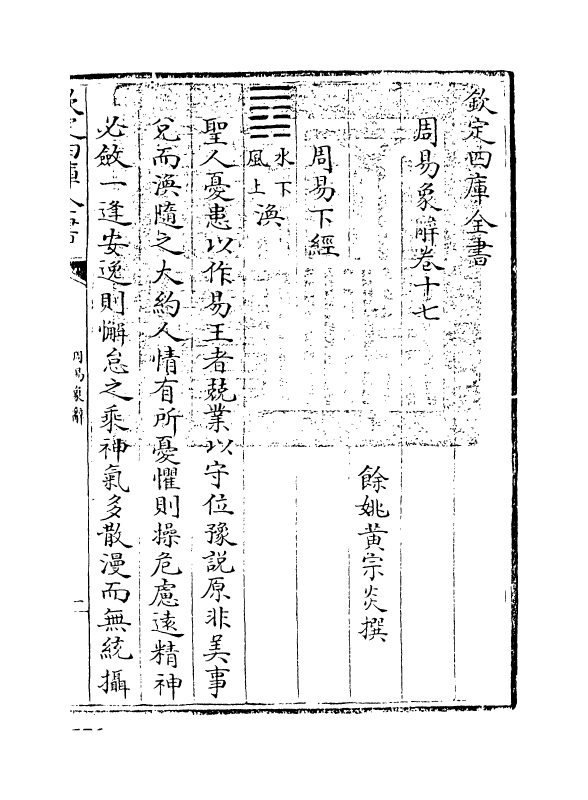 欽定四庫全書
周易象辭卷十七
餘姚黃宗炎撰
周易下經
水下
風上
渙
聖人憂患以作易王者兢業以守位豫說原非美事
兌而渙隨之大約人情有所憂懼則操危慮遠精神
必斂一逢安逸則懈怠之乘神氣多散漫而無統攝
欽定四庫全書
周易象辭
一